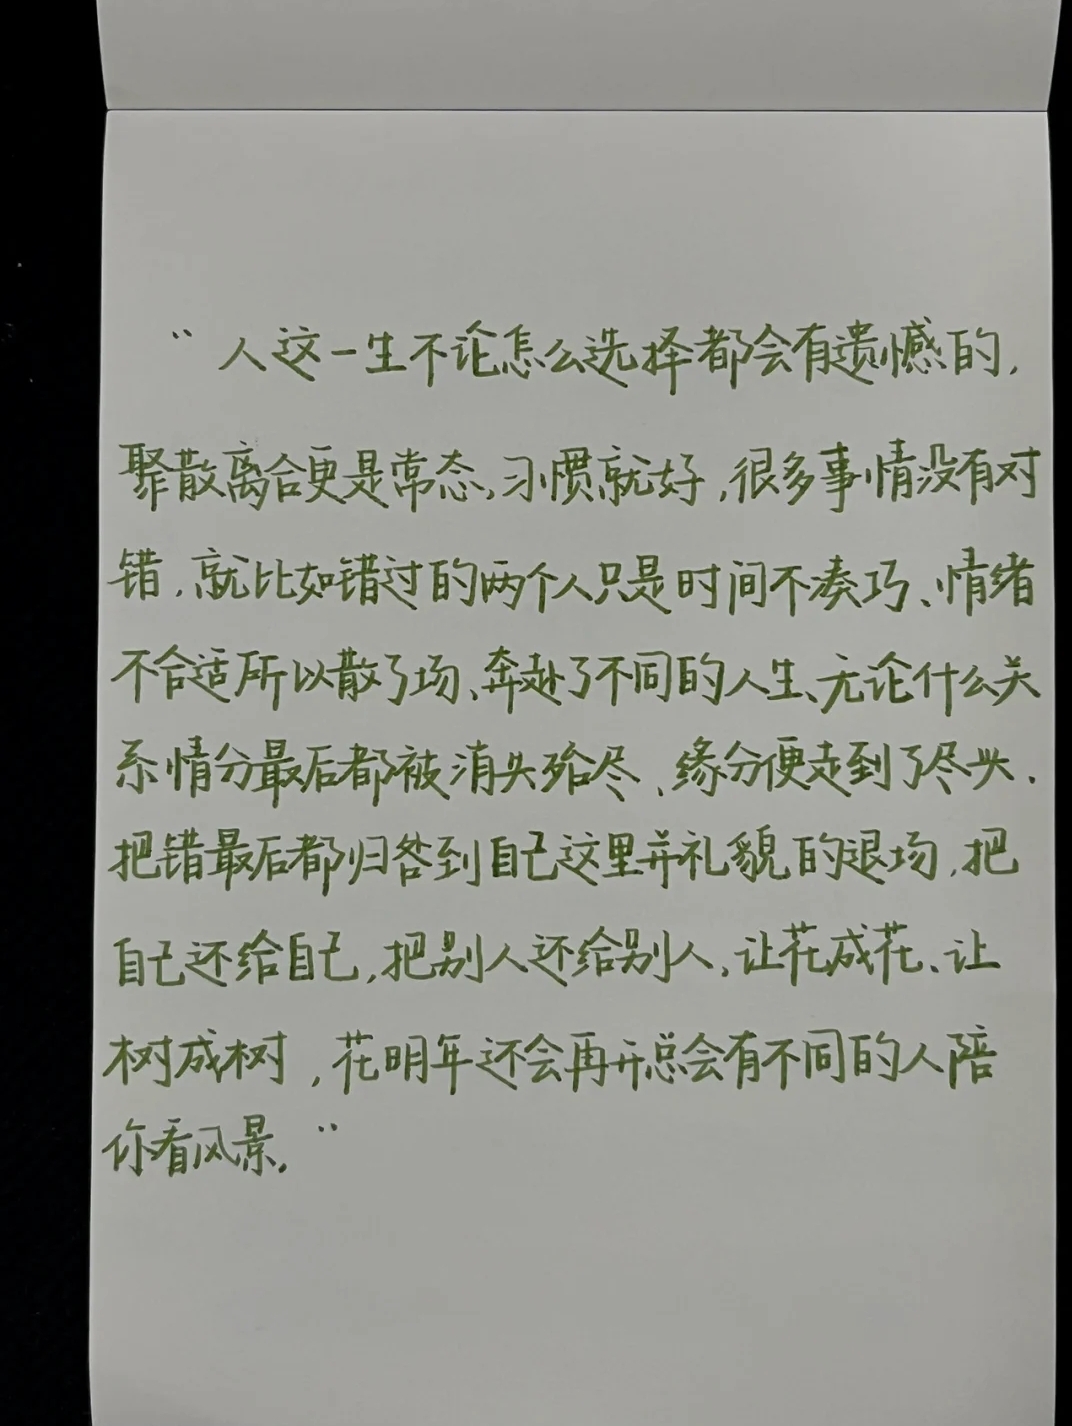 “人这一生不论怎么选择都会有遗憾的,
聚散离合更是常态,习惯就好,很多事情没有对
错,就比如错过的两个人只是时间不凑巧、情绪
不合适所以散了场、奔赴了不同的人生、无论什么关
系情分最后都被消失殆尽、缘分便走到了尽头.
把错最后都归咎到自己这里并礼貌的退场,把
自己还给自己,把别人还给别人,让花成花、让
树成树,花明年还会再开总会有不同的人陪
你看风景.”